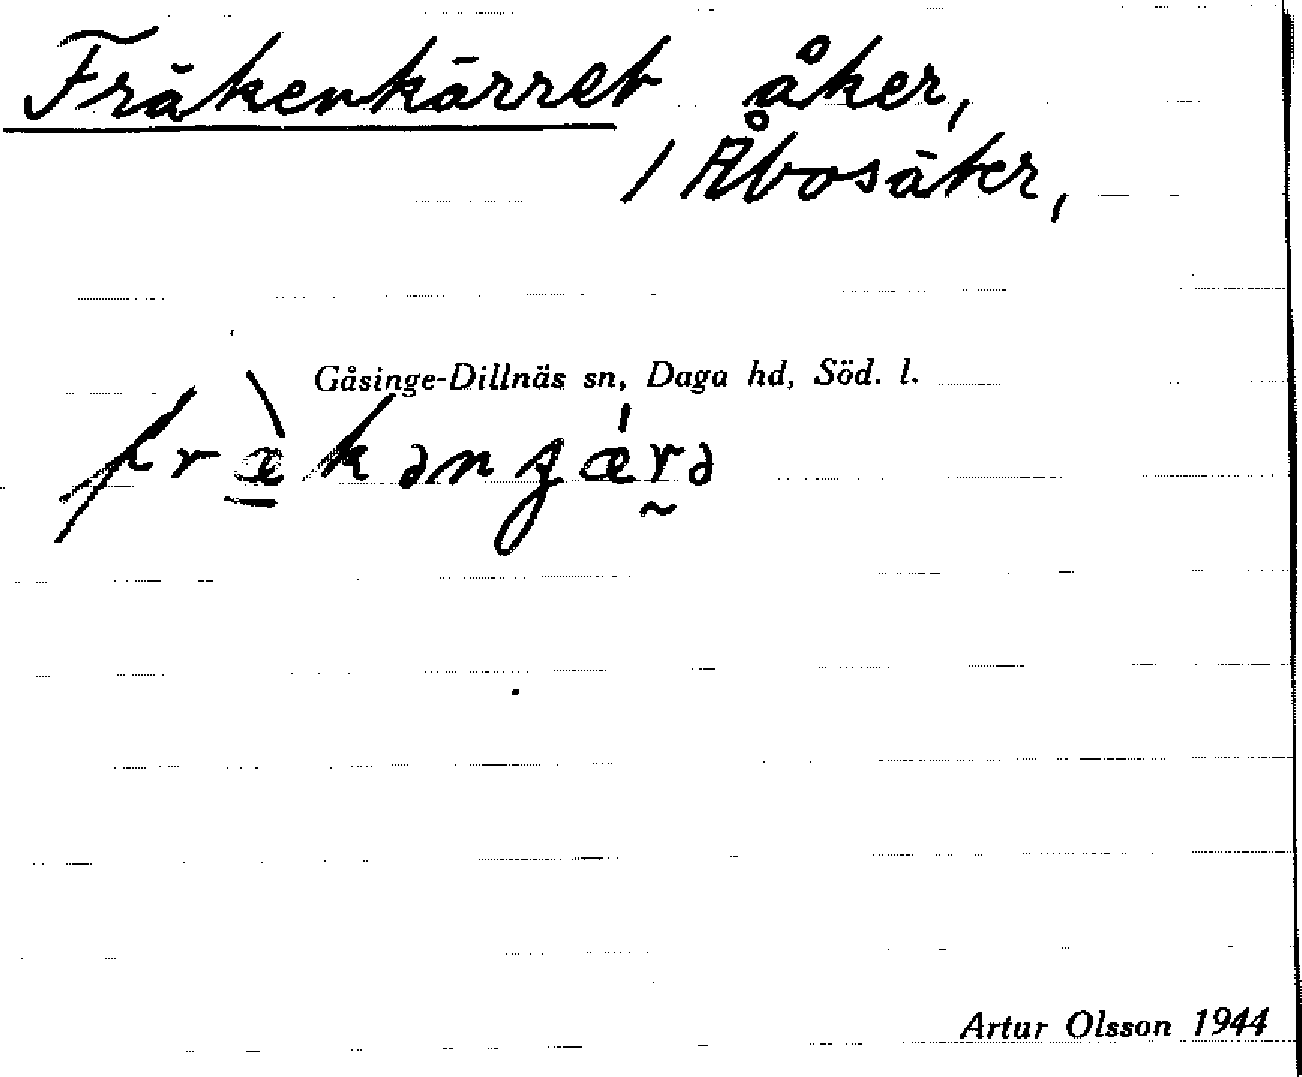 Fräkenkärret åker,
/ Åbosäter,
Gåsinge-Dillnäs sn, Daga hd, Söd. l.
fræ̀kənʒǽrə
Artur Olsson 1944